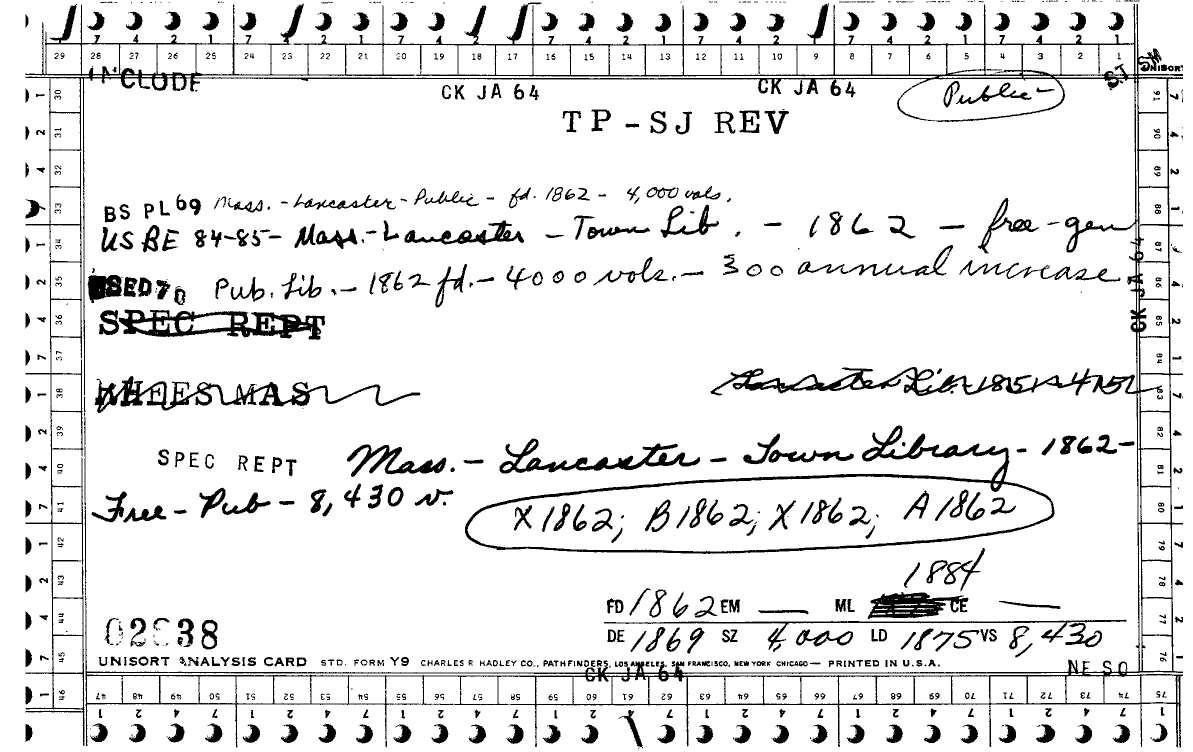 7 4 2 1 7 4 2 1 7 4 2 1 7 4 2 1 7 4 2 1 7 4 2 1 7 4 2 1
29 28 27 26 25 24 23 22 21 20 19 18 17 16 15 14 13 12 11 10 9 8 7 6 5 4 3 2 1
UNISORT
INCLUDE CK JA 64 CK JA 64 Public SJ
TP-SJ REV
BS PL 69 Mass. - Lancaster - Public - fd. 1862 - 4,000 vols.
US BE 84-85 - Mass. - Lancaster - Town Lib. - 1862 - free - gen
USED 70 Pub. Lib. - 1862 fd. - 4000 vols. - 300 annual increase
CK JA 64
SPEC REPT
RHEES MAS Lancaster Lib. 1851
SPEC REPT Mass. - Lancaster - Town Library - 1862 -
Free - Pub - 8,430 v.
X 1862; B 1862; X 1862; A 1862
1884
FD 1862 EM — ML CE —
DE 1869 SZ 4,000 LD 1875 VS 8,430
02838
UNISORT ANALYSIS CARD STD. FORM Y9 CHARLES R. HADLEY CO., PATHFINDERS, LOS ANGELES, SAN FRANCISCO, NEW YORK CHICAGO — PRINTED IN U.S.A.
CK JA 64 NE SO
30 31 32 33 34 35 36 37 38 39 40 41 42 43 44 45 46
91 90 89 88 87 86 85 84 83 82 81 80 79 78 77 76 75
47 48 49 50 51 52 53 54 55 56 57 58 59 60 61 62 63 64 65 66 67 68 69 70 71 72 73 74
1 2 4 7 1 2 4 7 1 2 4 7 1 2 4 7 1 2 4 7 1 2 4 7 1 2 4 7